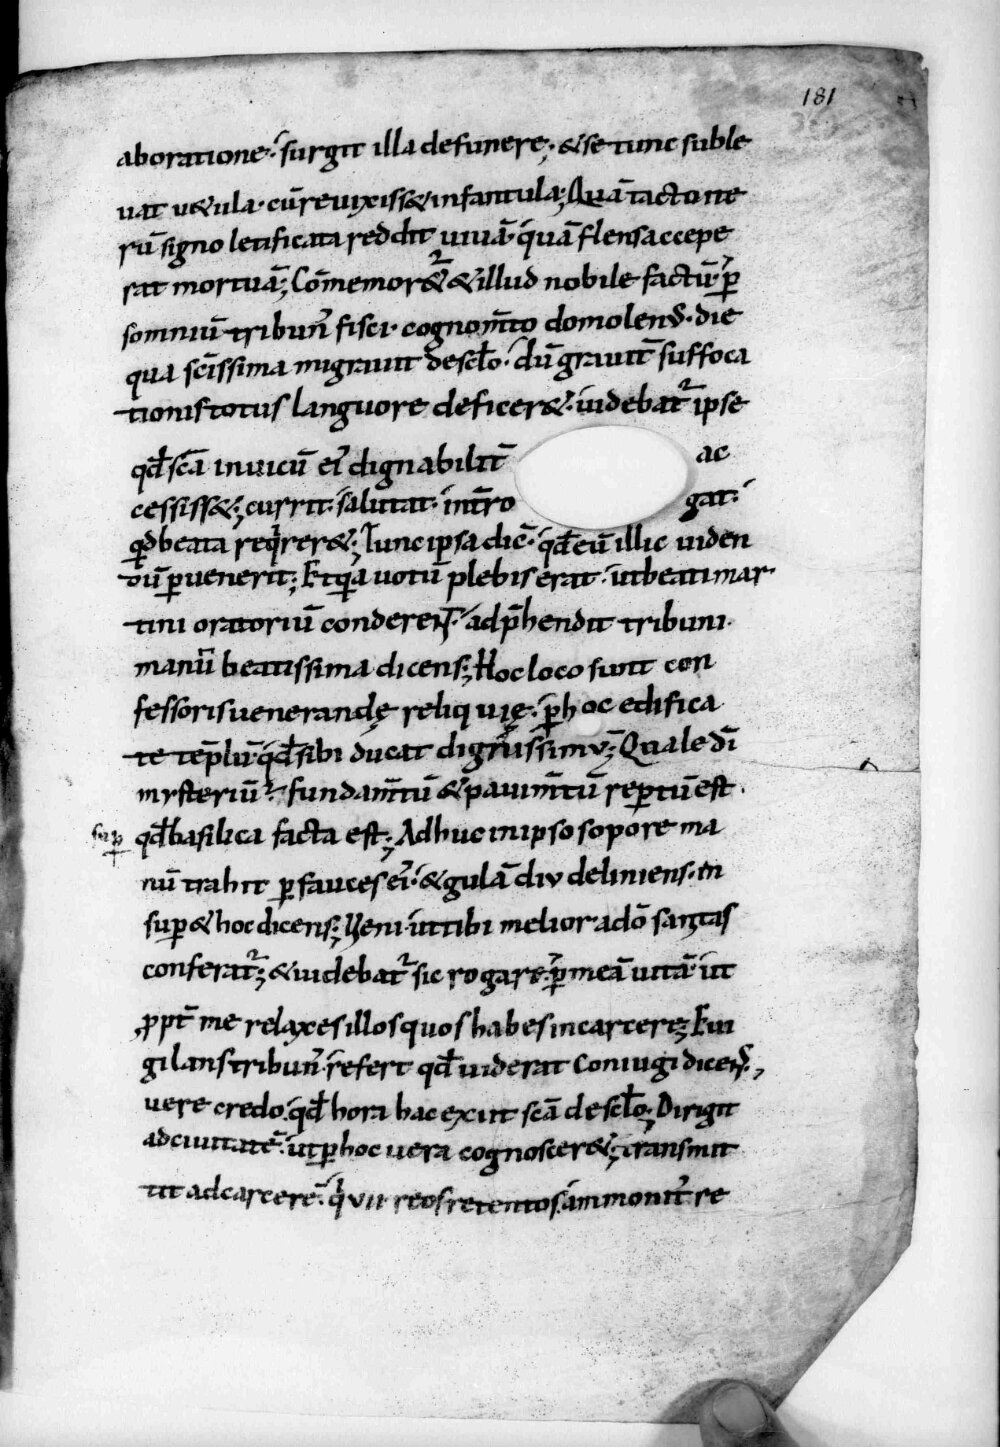 181
ab oratione· surgit illa de funere; & se tunc suble
uat uetula· cū reuixiss& infantula; Quā tacto ite
rū signo letificata reddit uiuā· quā flens accepe
rat mortuā; Cōmemoret᷑ & illud nobile factū· p̄
somniū tribuni᷒ fisci· cognom̄to domolen᷒· die
qua sc̄issima migrauit de scło· dū grauit̄ suffoca
tionis totus languore deficer&· uidebat᷑ ipse
qđ scā in uicū ei᷒ dignabilit̄ ac
cessiss&; currit· salutat· int̄ro gat·
qid beata reqrer&; Tunc ipsa dic̄· qđ eū illic uiden
dū ꝑuenerit; Et qa uotū plebis erat· ut beati mar
tini oratoriū conderent· adp̄hendit tribuni·
manū beatissima dicens; Hoc loco sunt con
fessoris uenerandę reliquię· ꝑ hoc edifica
te tēplū· qđ sibi ducat dignissimū; Quale dī
mysteriū· fundam̄tū & pauim̄tū reꝑtū est·
suꝑ qđ basilica facta est; Adhuc in ipso sopore ma
nū trahit ꝑ fauces ei᷒· & gulā diu deliniens· in
suꝑ & hoc dicens; Veni· ut tibi melior· a dō sanitas
conferat᷑; & uidebat᷑ sic rogare· ꝑ meā uitā· ut
ꝓpt̄ me relaxes illos quos habes in carcere; Eui
gilans tribun᷒· refert qđ uiderat coniugi dicens·,
uere credo· qđ hora hac exiit scā de scło· Dirigit
ad ciuitatē· ut ꝑ hoc uera cognoscer&; transmit
tit ad carcerē· q vii· reos retentos· ammonit᷒ re